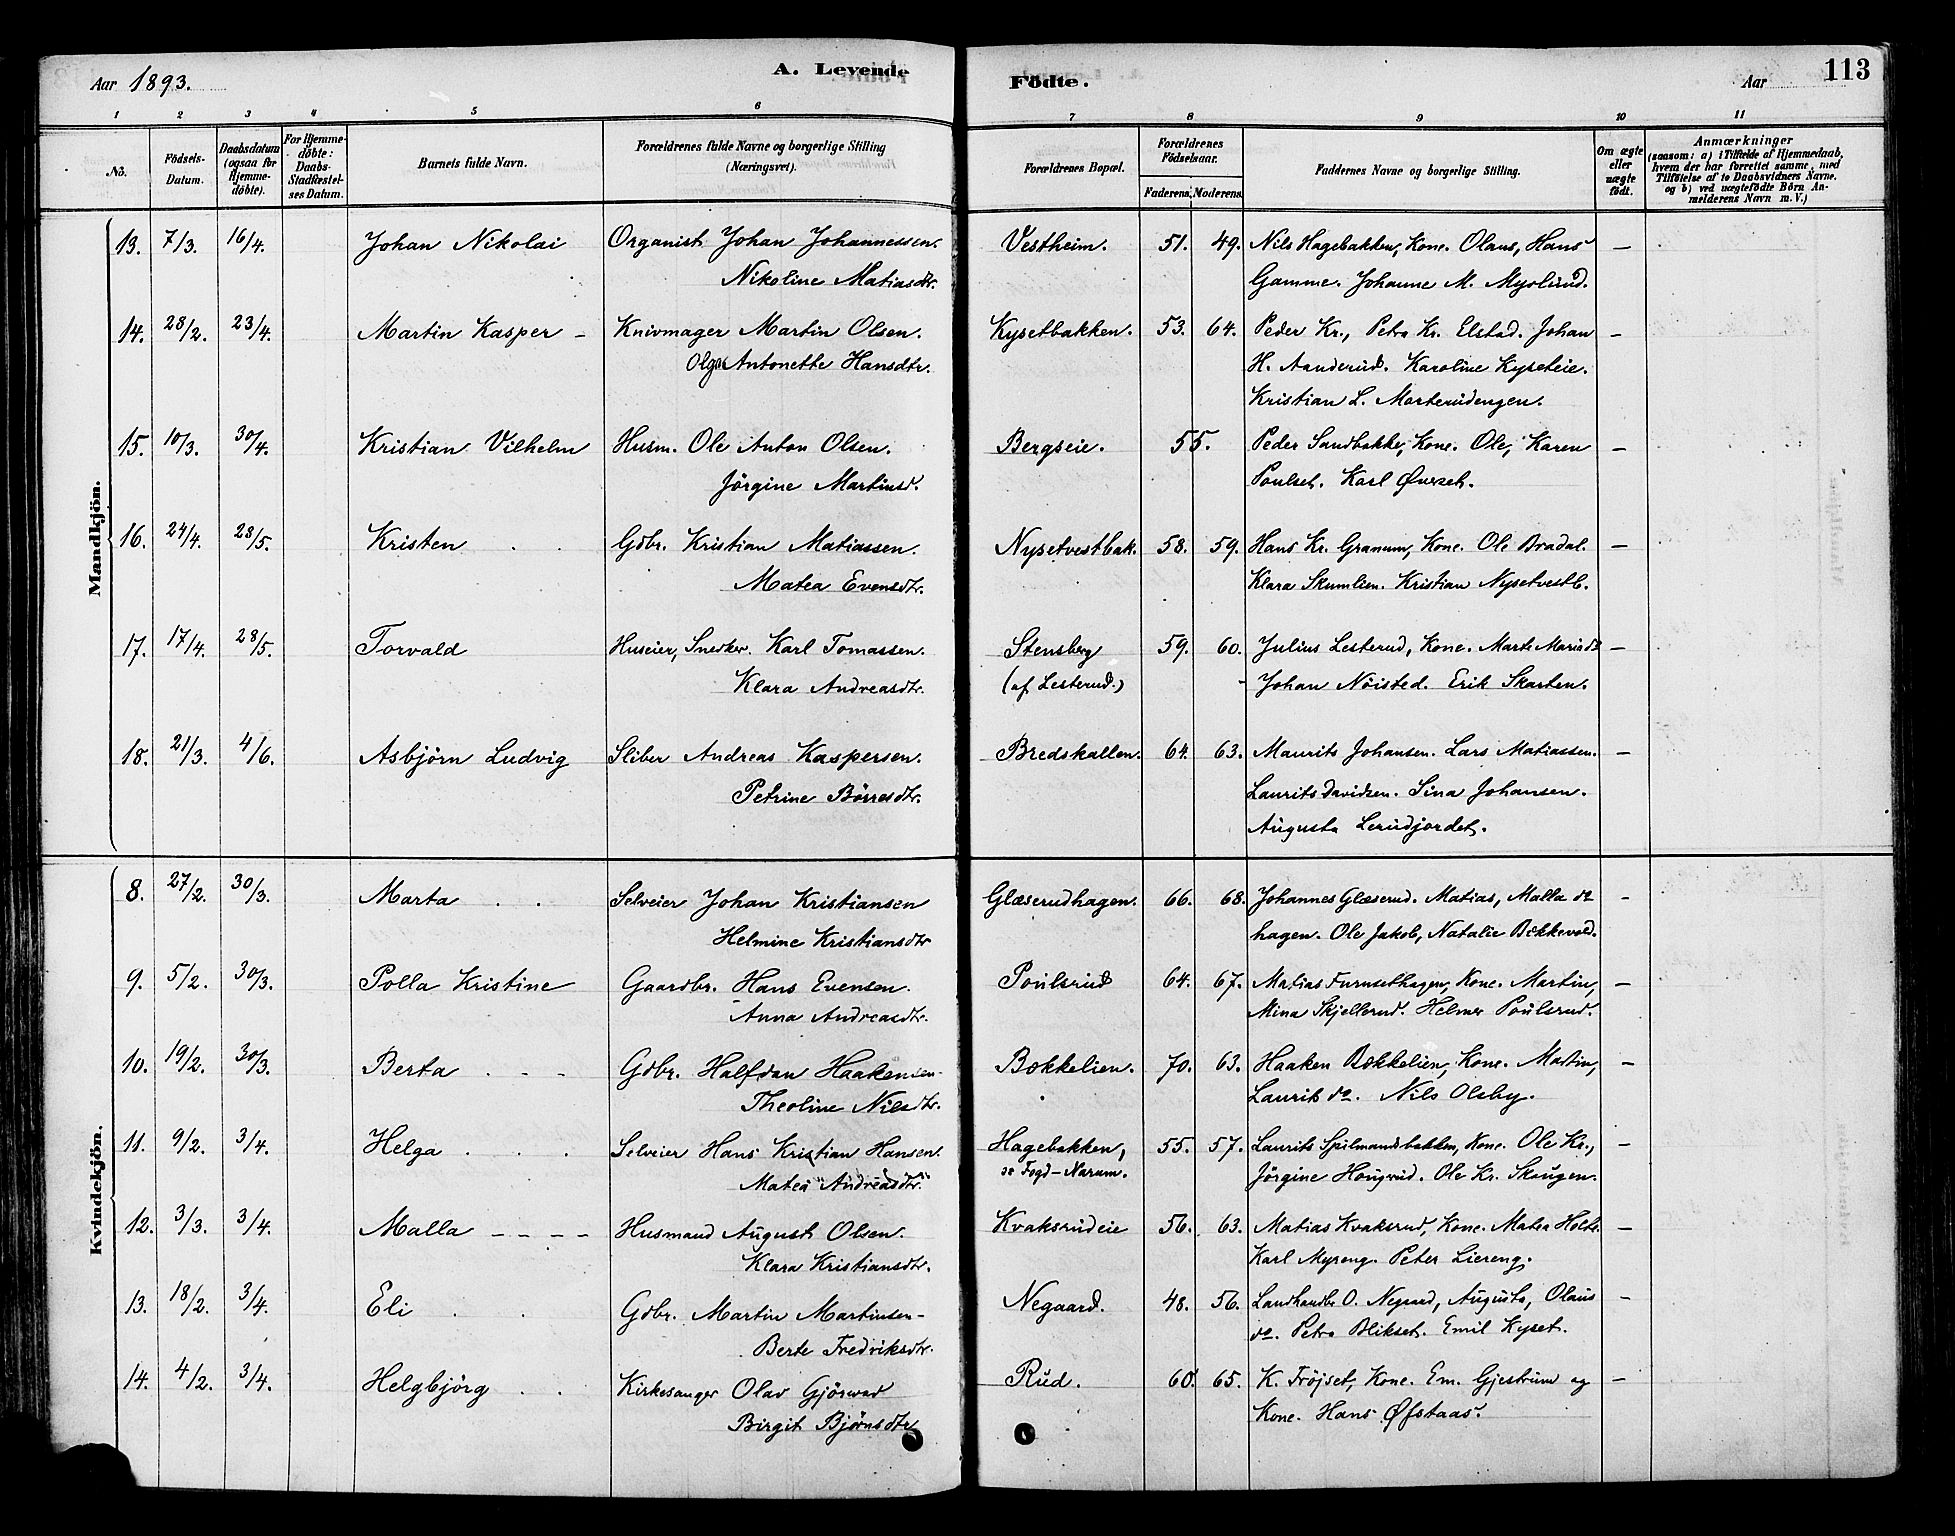 Aar 1893.
A. Levende
Födte.
Aar
113
1 2 3 4 5 6 7 8 9 10 11
No.
Födsels-Datum.
Daabsdatum (ogsaa for Hjemme-döbte).
For Hjemme-döbte: Daabs-Stadfæstel-ses Datum.
Barnets fulde Navn.
Forældrenes fulde Navne og borgerlige Stilling (Næringsvei).
Forældrenes Bopæl.
Forældrenes Födselsaar.
Faderens. Moderens.
Faddernes Navne og borgerlige Stilling.
Om ægte eller uægte födt.
Anmærkninger
(saasom: a) i Tilfælde af Hjemmedaab, hvem der har forrettet samme, med Tilföielse af to Daabsvidners Navne. og b) ved uægtefödte Börn An-melderens Navn m. V.)
Mandkjön.
13. 7/3. 16/4. Johan Nikolai Organist Johan Johannessen. Vestheim. 51. 49. Nils Hagebakken, Kone. Olaus, Hans —
Nikoline Matiasdtr. Gamme. Johanne M. Myslund.
14. 28/2. 23/4. Martin Kasper – Knivmager Martin Olsen. Kysetbakken. 53. 64. Peder Kr., Petra Kr. Elstad. Johan —
Olga Antonette Hansdtr. H. Aanderud. Karoline Kyseteie.
Kristian L. Marterudengen.
15. 10/3. 30/4. Kristian Vilhelm Husm. Ole Anton Olsen. Bergseie. 55. Peder Sandbakke, Kone. Ole, Karen —
Jörgine Martinsd. Poulset. Karl Øverset.
16. 24/4. 28/5. Kristen Gdbr. Kristian Matiassen. Nysetvestbak. 58. 59. Hans Kr. Granum, Kone. Ole Bradal. —
Matea Evensdtr. Klara Skumlien. Kristian Nysetvestb.
17. 17/4. 28/5. Torvald Huseier, Snedker. Karl Tomassen. Stensberg 59. 60. Julius Lesterud, Kone. Marte Maria do —
Klara Andreasdtr. (af Lesterud.) Johan Nöisted. Erik Skarten.
18. 21/3. 4/6. Asbjörn Ludvig Sliber Andreas Kaspersen. Bredskallen. 64. 63. Maurits Johansen. Lars Matiassen. —
Petrine Börresdtr. Laurits Davidsen. Sina Johansen.
Augusta Lerudjordet.
Kvindekjön.
8. 27/2. 30/3. Marta Selveier Johan Kristiansen Glæserudhagen. 66. 68. Johannes Glæserud. Matias, Malla do —
Helmine Kristiansdtr hagen. Ole Jakob, Natalie Bækkevold.
9. 5/2. 30/3. Polla Kristine Gaardbr. Hans Evensen. Poulsrud 64. 67. Matias Furusethagen, Kone. Martin, —
Anna Andreasdtr. Mina Skjellerud. Helmer Poulsrud.
10. 19/2. 30/3. Berta Gdbr. Halfdan Haakensen. Bækkelien. 70. 63. Haaken Bækkelien, Kone. Martin, —
Theoline Nilsdtr. Laurits do. Nils Olsby.
11. 9/2. 3/4. Helga Selveier Hans Kristian Hansen. Hagebakken, 55. 57. Laurits Spilmandsbakken, Kone. Ole Kr., —
Matea Andreasdtr. Fogd-Naram. Jörgine Hougrud. Ole Kr. Skougen.
12. 3/3. 3/4. Malla – – – – Husmand August Olsen. Kvaksrudeie 56. 63. Matias Kvaksrud, Kone. Matea Holte. —
Klara Kristiansdtr. Karl Myreng. Peter Liereng.
13. 18/2. 3/4. Eli Gdbr. Martin Martinsen– Negaard. 48. 56. Landhandler O. Negaard, Augusta, Olaus —
Berte Fredriksdtr. do. Petra Blikset. Emil Kyset.
14. 4/2. 3/4. Helgbjörg Kirkesanger Olav Gjörwad Rud. 60. 65. K. Fröjset, Kone. Em. Gjestrum og —
Birgit Bjørnsdtr Kone. Hans Øfstaas.